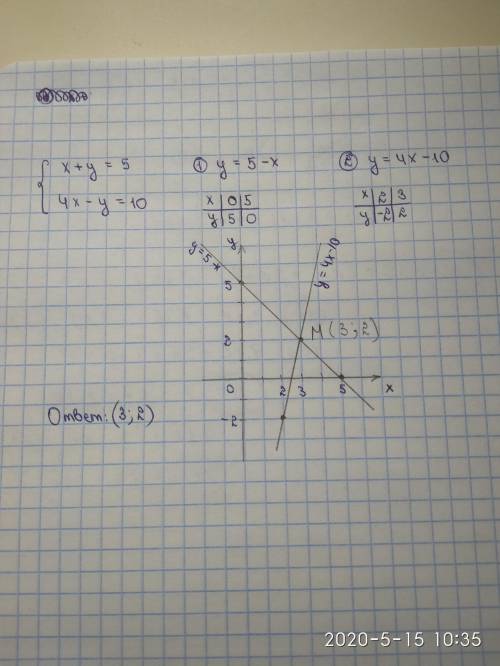 { x+y = 5
4x - y = 10
① y = 5 - x
x | 0 | 5
y | 5 | 0
② y = 4x - 10
x | 2 | 3
y | -2 | 2
y
y = 5 - x
y = 4x - 10
5
2
M (3; 2)
0 2 3 5 x
-2
Ответ: (3; 2)
2020-5-15 10:35